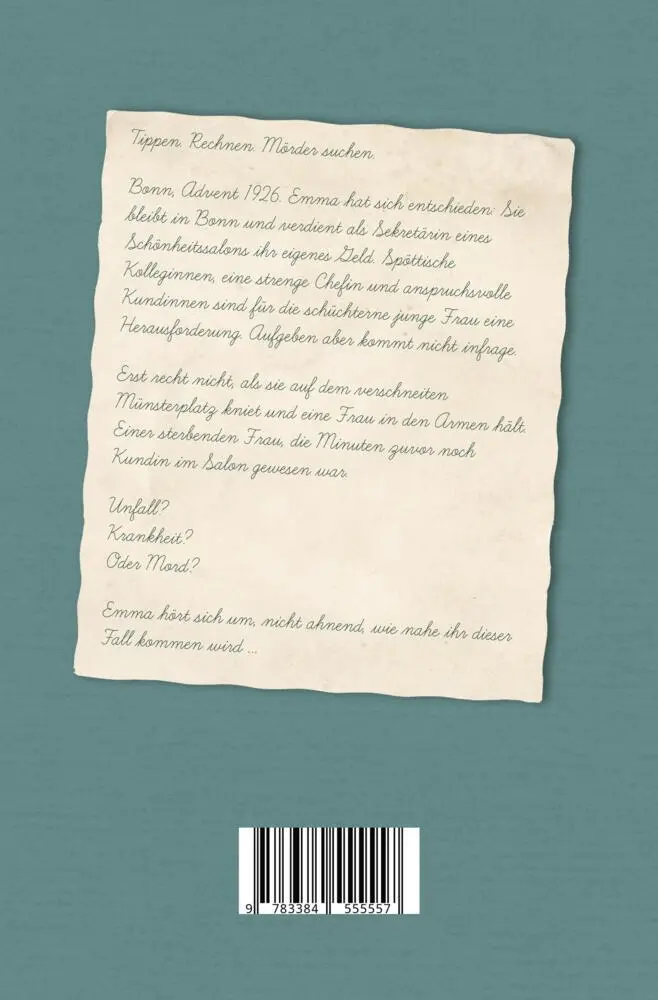 Tippen. Rechnen. Mörder suchen.
Bonn, Advent 1926. Emma hat sich entschieden: Sie
bleibt in Bonn und verdient als Sekretärin eines
Schönheitssalons ihr eigenes Geld. Spöttische
Kolleginnen, eine strenge Chefin und anspruchsvolle
Kundinnen sind für die schüchterne junge Frau eine
Herausforderung. Aufgeben aber kommt nicht infrage.
Erst recht nicht, als sie auf dem verschneiten
Münsterplatz kniet und eine Frau in den Armen hält.
Einer sterbenden Frau, die Minuten zuvor noch
Kundin im Salon gewesen war.
Unfall?
Krankheit?
Oder Mord?
Emma hört sich um, nicht ahnend, wie nahe ihr dieser
Fall kommen wird ...
9 783384 555557